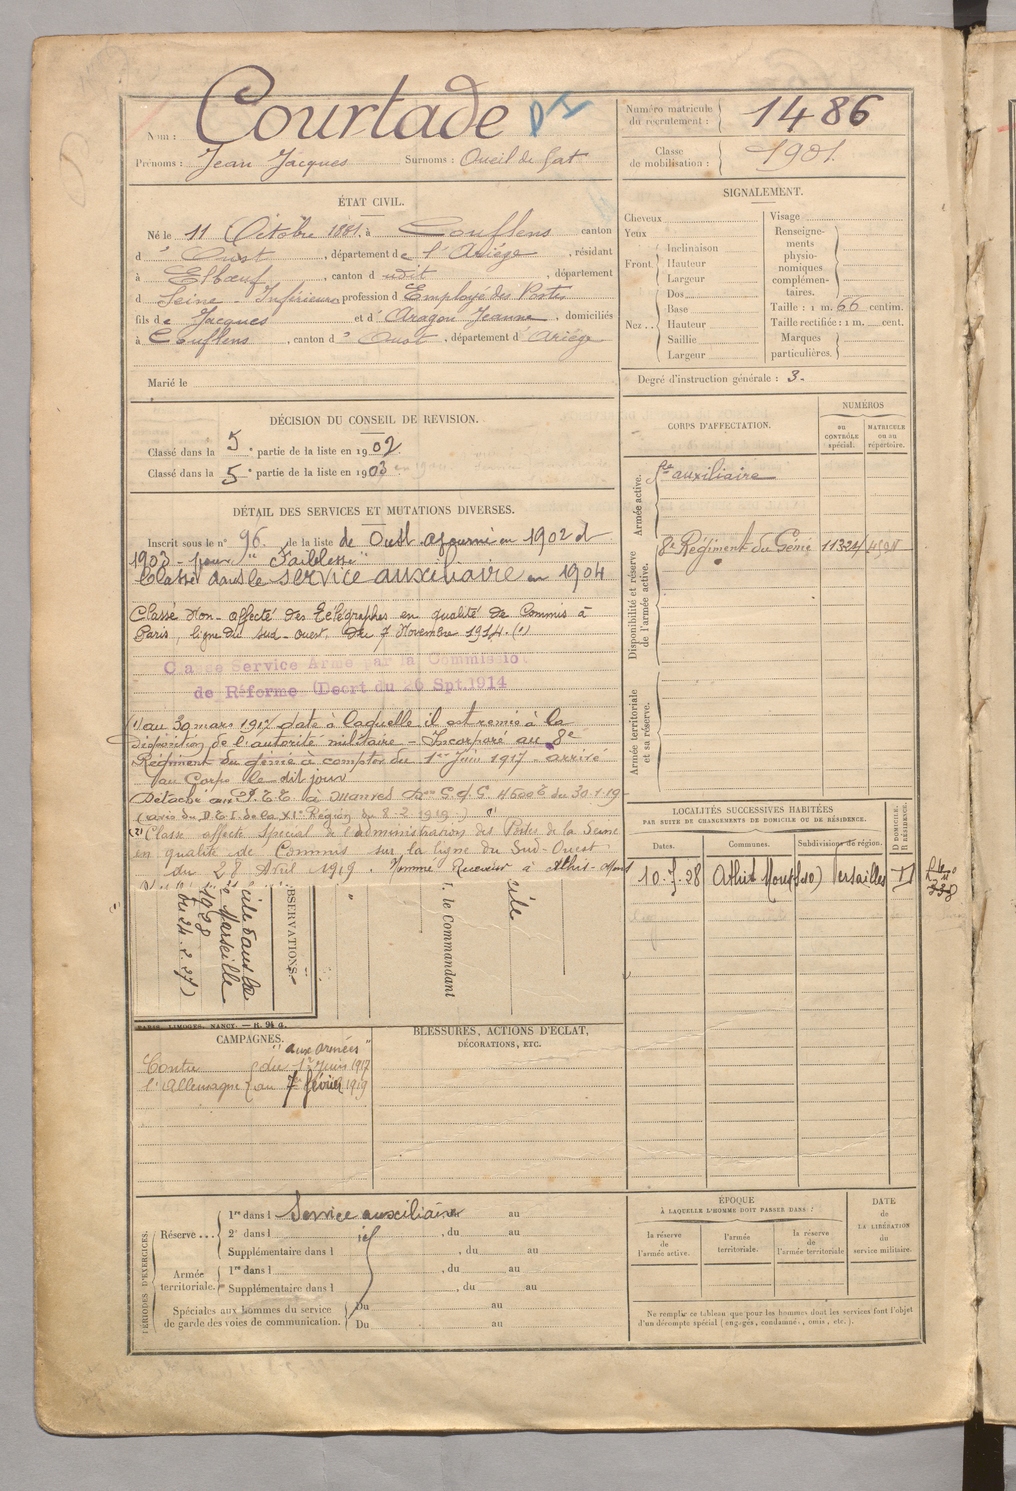 Nom : Courtade
Prénoms : Jean Jacques Surnoms : Oueil de Gat
Numéro matricule du recrutement : 1486
Classe de mobilisation : 1901
ÉTAT CIVIL.
Né le 11 Octobre 1881, à Couflens canton
d' Oust, département de l'Ariège, résidant
à Elbœuf, canton d udit, département
d Seine-Inférieure profession d'Employé des Postes
fils de Jacques et d'Aragon Jeanne, domiciliés
à Couflens, canton d' Oust, département d'Ariège
Marié le
SIGNALEMENT.
Cheveux
Yeux
Front
Inclinaison
Hauteur
Largeur
Nez..
Dos
Base
Hauteur
Saillie
Largeur
Visage
Renseignements physionomiques complémentaires.
Taille : 1 m. 66 centim.
Taille rectifiée : 1 m. cent.
Marques particulières.
Degré d'instruction générale : 3.
DÉCISION DU CONSEIL DE REVISION.
Classé dans la 5e partie de la liste en 1902
Classé dans la 5e partie de la liste en 1903
DÉTAIL DES SERVICES ET MUTATIONS DIVERSES.
Inscrit sous le n° 96 de la liste de Oust. ajourné en 1902 et
1903 - pour "Faiblesse"
Classé dans le service auxiliaire en 1904
Classé Non-affecté des Télégraphes en qualité de Commis à
Paris, ligne du Sud-Ouest, du 7 Novembre 1914. (1)
Classé Service Armé par la Commission
de Réforme (Decrt du 26 Spt.1914
(1) au 30 mars 1917 date à laquelle il est remis à la
disposition de l'autorité militaire - Incorporé au 8e
Régiment du génie à compter du 1er Juin 1917 - arrivé
au Corps le dit jour
Détaché aux P.T.T. à Nantes du 30-1-19
(avis du D.E.I. de la XIe Région du 8-2-1919)
(2) Classé affecté Spécial de l'administration des Postes de la Seine
en qualité de Commis sur la ligne du Sud-Ouest
du 28 Avril 1919. Nommé Receveur à Athis-Mons
CORPS D'AFFECTATION.
NUMÉROS
AU CONTRÔLE SPÉCIAL.
MATRICULE OU AU RÉPERTOIRE.
Armée active.
Sce auxiliaire
Disponibilité et réserve de l'armée active.
8e Régiment du Génie 11324
Armée territoriale et sa réserve.
LOCALITÉS SUCCESSIVES HABITÉES
PAR SUITE DE CHANGEMENTS DE DOMICILE OU DE RÉSIDENCE.
Dates. Communes. Subdivisions de région. D DOMICILE. R RÉSIDENCE.
10-7-28 Athis Mons (S&O) Versailles D
OBSERVATIONS.
Marseille
1928
du 24.2.27)
le Commandant
PARIS, LIMOGES, NANCY. — R. 94 G.
CAMPAGNES.
"aux armées"
Contre l'Allemagne du 1er Juin 1917
au 7 février 1919
BLESSURES, ACTIONS D'ÉCLAT,
DÉCORATIONS, ETC.
PÉRIODES D'EXERCICES.
Réserve...
1re dans l Service auxiliaire au
2e dans l , du au
Supplémentaire dans l , du au
Armée territoriale.
1re dans l , du au
Supplémentaire dans l , du au
Spéciales aux hommes du service
de garde des voies de communication.
Du au
Du au
ÉPOQUE
À LAQUELLE L'HOMME DOIT PASSER DANS :
la réserve de l'armée active.
l'armée territoriale.
la réserve de l'armée territoriale
DATE de LA LIBÉRATION du service militaire.
Ne remplir ce tableau que pour les hommes dont les services font l'objet
d'un décompte spécial (engagés, condamnés, omis, etc.).